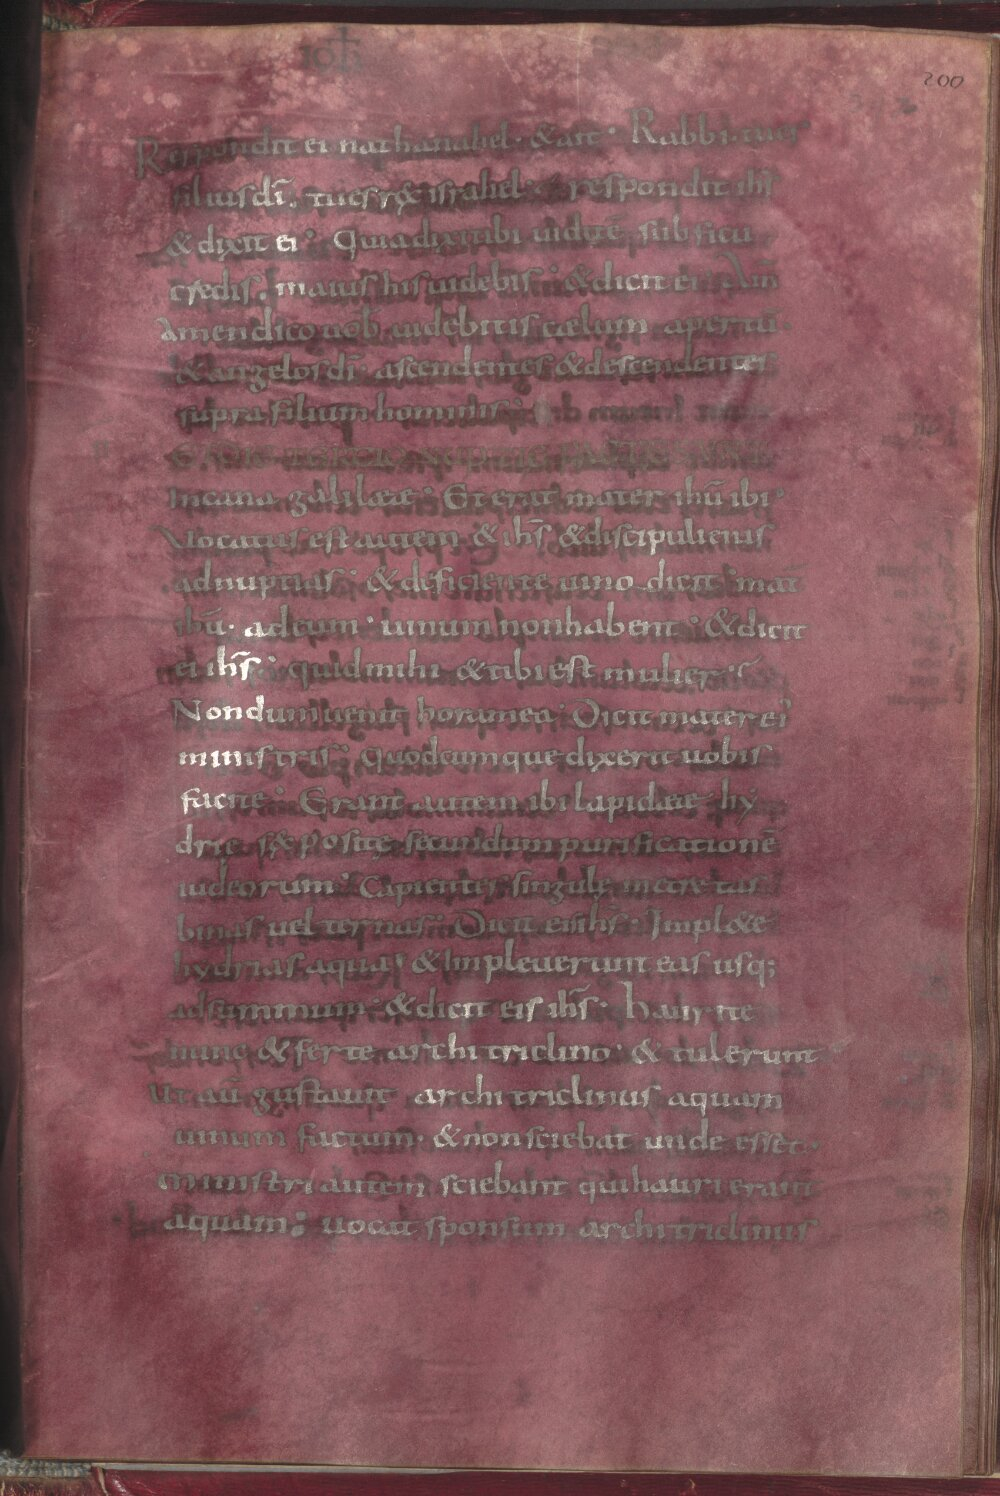 ioh
200
Respondit ei nathanahel · & ait · Rabbi · tu es
filius dī · tu es rex israhel · respondit ihs̄
& dixit ei · Quia dixi tibi uidi tē sub ficu
credis · maius his uidebis · & dicit ei Am̄
Amen dico uob̄ uidebitis cælum apertū ·
& angelos dī · ascendentes & descendentes
supra filium hominis ·
In cana galilææ · Et erat mater ihū ibi ·
Vocatus est autem & ihs̄ & discipuli eius
ad nuptias · & deficiente uino dicit mat̄
ihū · ad eum · uinum non habent · & dicit
ei ihs̄ · quid mihi & tibi est mulier ·
Nondum uenit hora mea · Dicit mater ei
ministris · quodcumque dixerit uobis
facite · Erant autem ibi lapidææ hy
drię sex positę secundum purificationē
iudeorum · Capientes singulę metretas
binas uel ternas · Dicit eis ihs̄ · Implæ&e
hydrias aqua · & Impleuerunt eas usq;
ad summum · & dicit eis ihs̄ · haurite
nunc & ferte architriclino · & tulerunt
Ut aū gustauit architriclinus aquam
uinum factum · & non sciebat unde esset ·
ministri autem sciebant qui hauri erant
aquam : uocat sponsum architriclinus